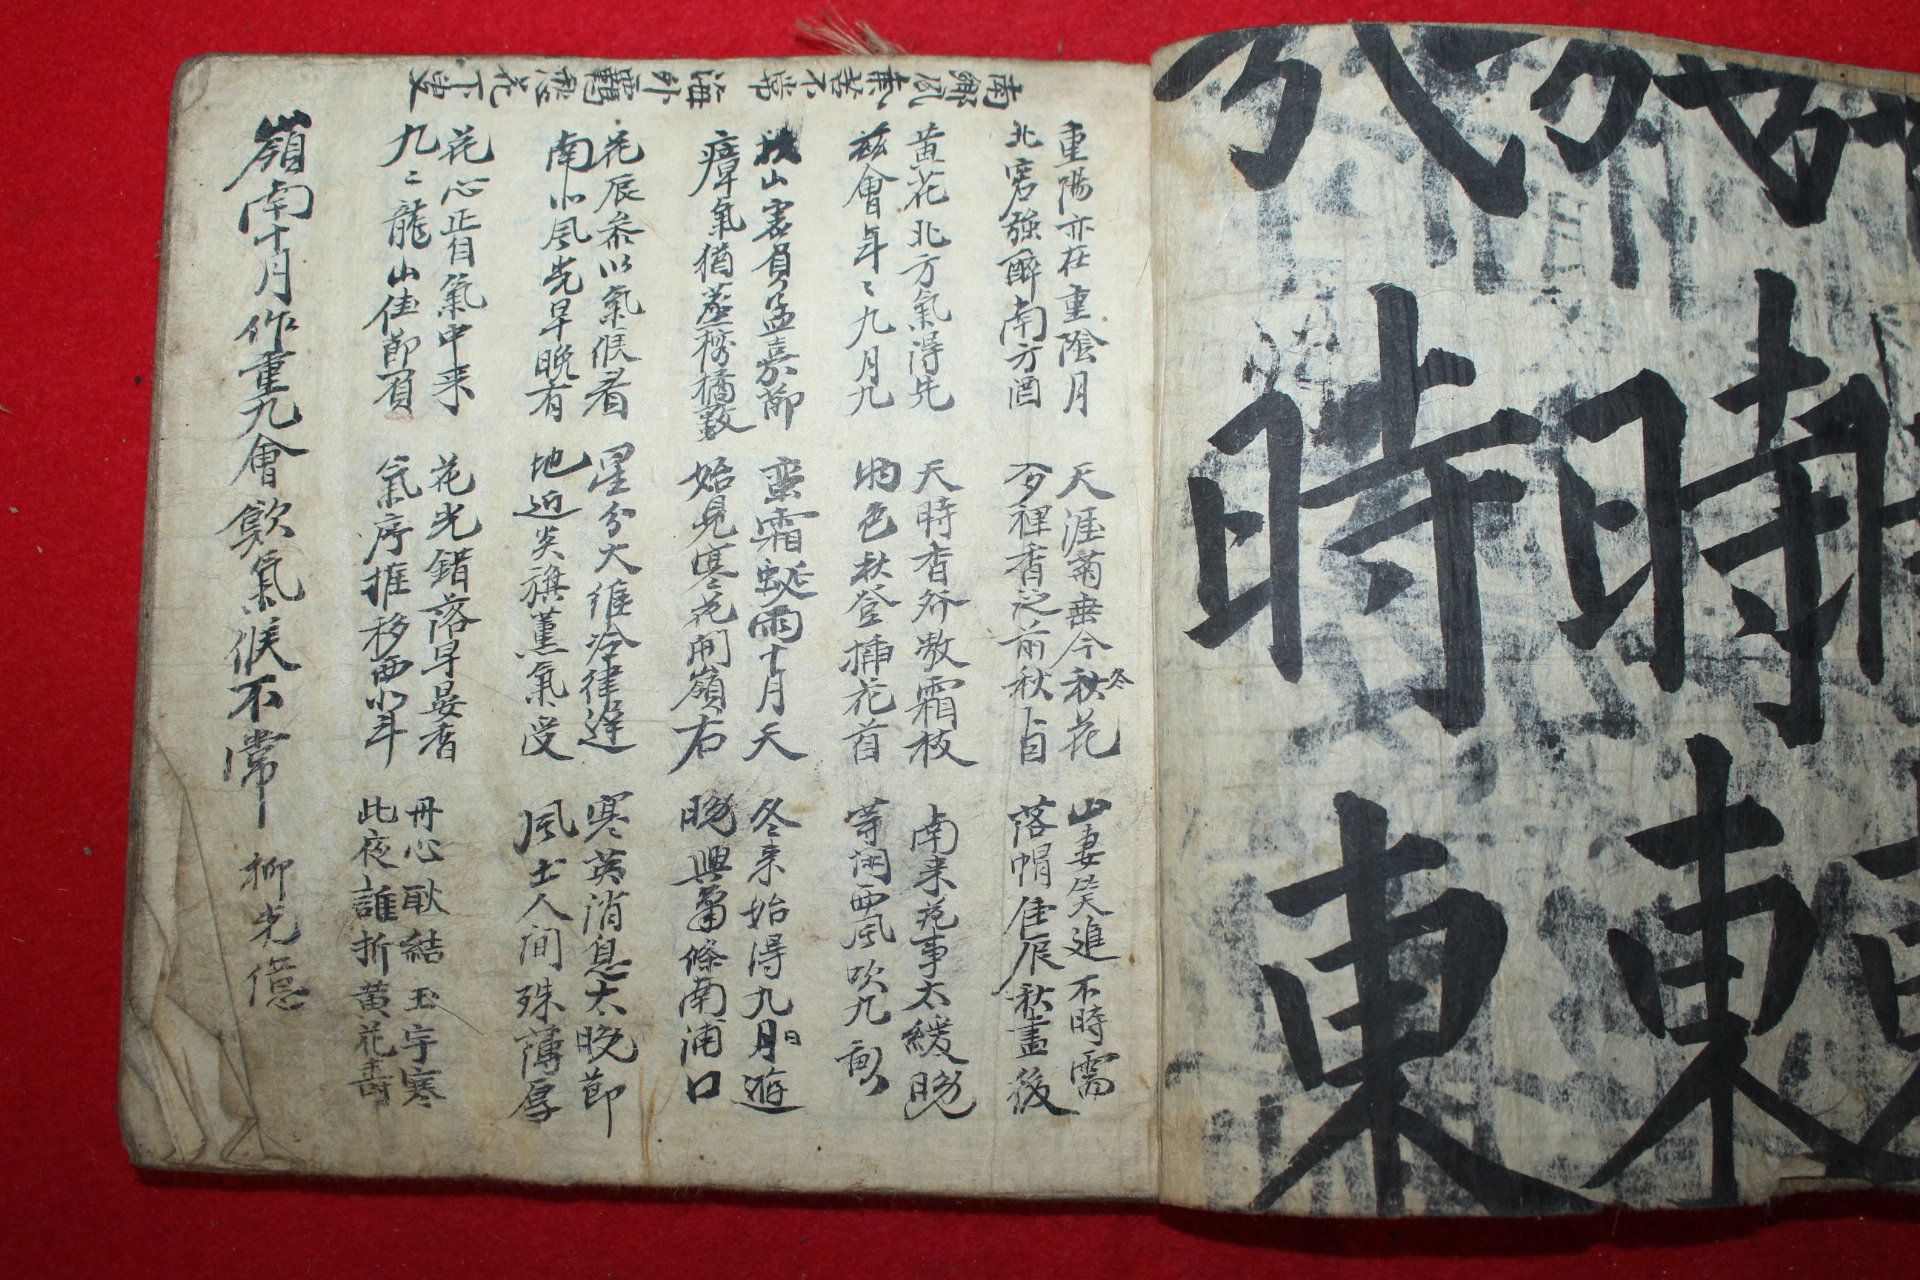 時東
時東
南鄉風氣苦不常 海外羈愁花下叟
重陽亦在重陰月 天涯菊垂今秋冬花 山妻笑進不時需
北客強醉南方酒 裡香前秋 落帽佳辰秋盡後
黄花北方氣得先 天時香傲霜枝 南来花事太緩晩
茲會年〻九月九 物色秋登揷花首 等閑西風吹九畝
山客負孟嘉節 蛮霜蜒雨十月天 冬来始得九月日遊
瘴氣猶蒸橘藪 始見寒花開嶺右 晩興蕭條南浦口
花辰以氣候看 星分大維冷律遲 寒英消息太晩節
南小風光早晩有 地近炎旗薰氣受 風土人间殊薄厚
花心正自氣中来 花光錯落早晏香 丹心耿結玉宇寒
九〻龍山佳節負 氣序推移西小斗 此夜誰折黄花壽
嶺南十月作重九會歎氣候不常 柳光億